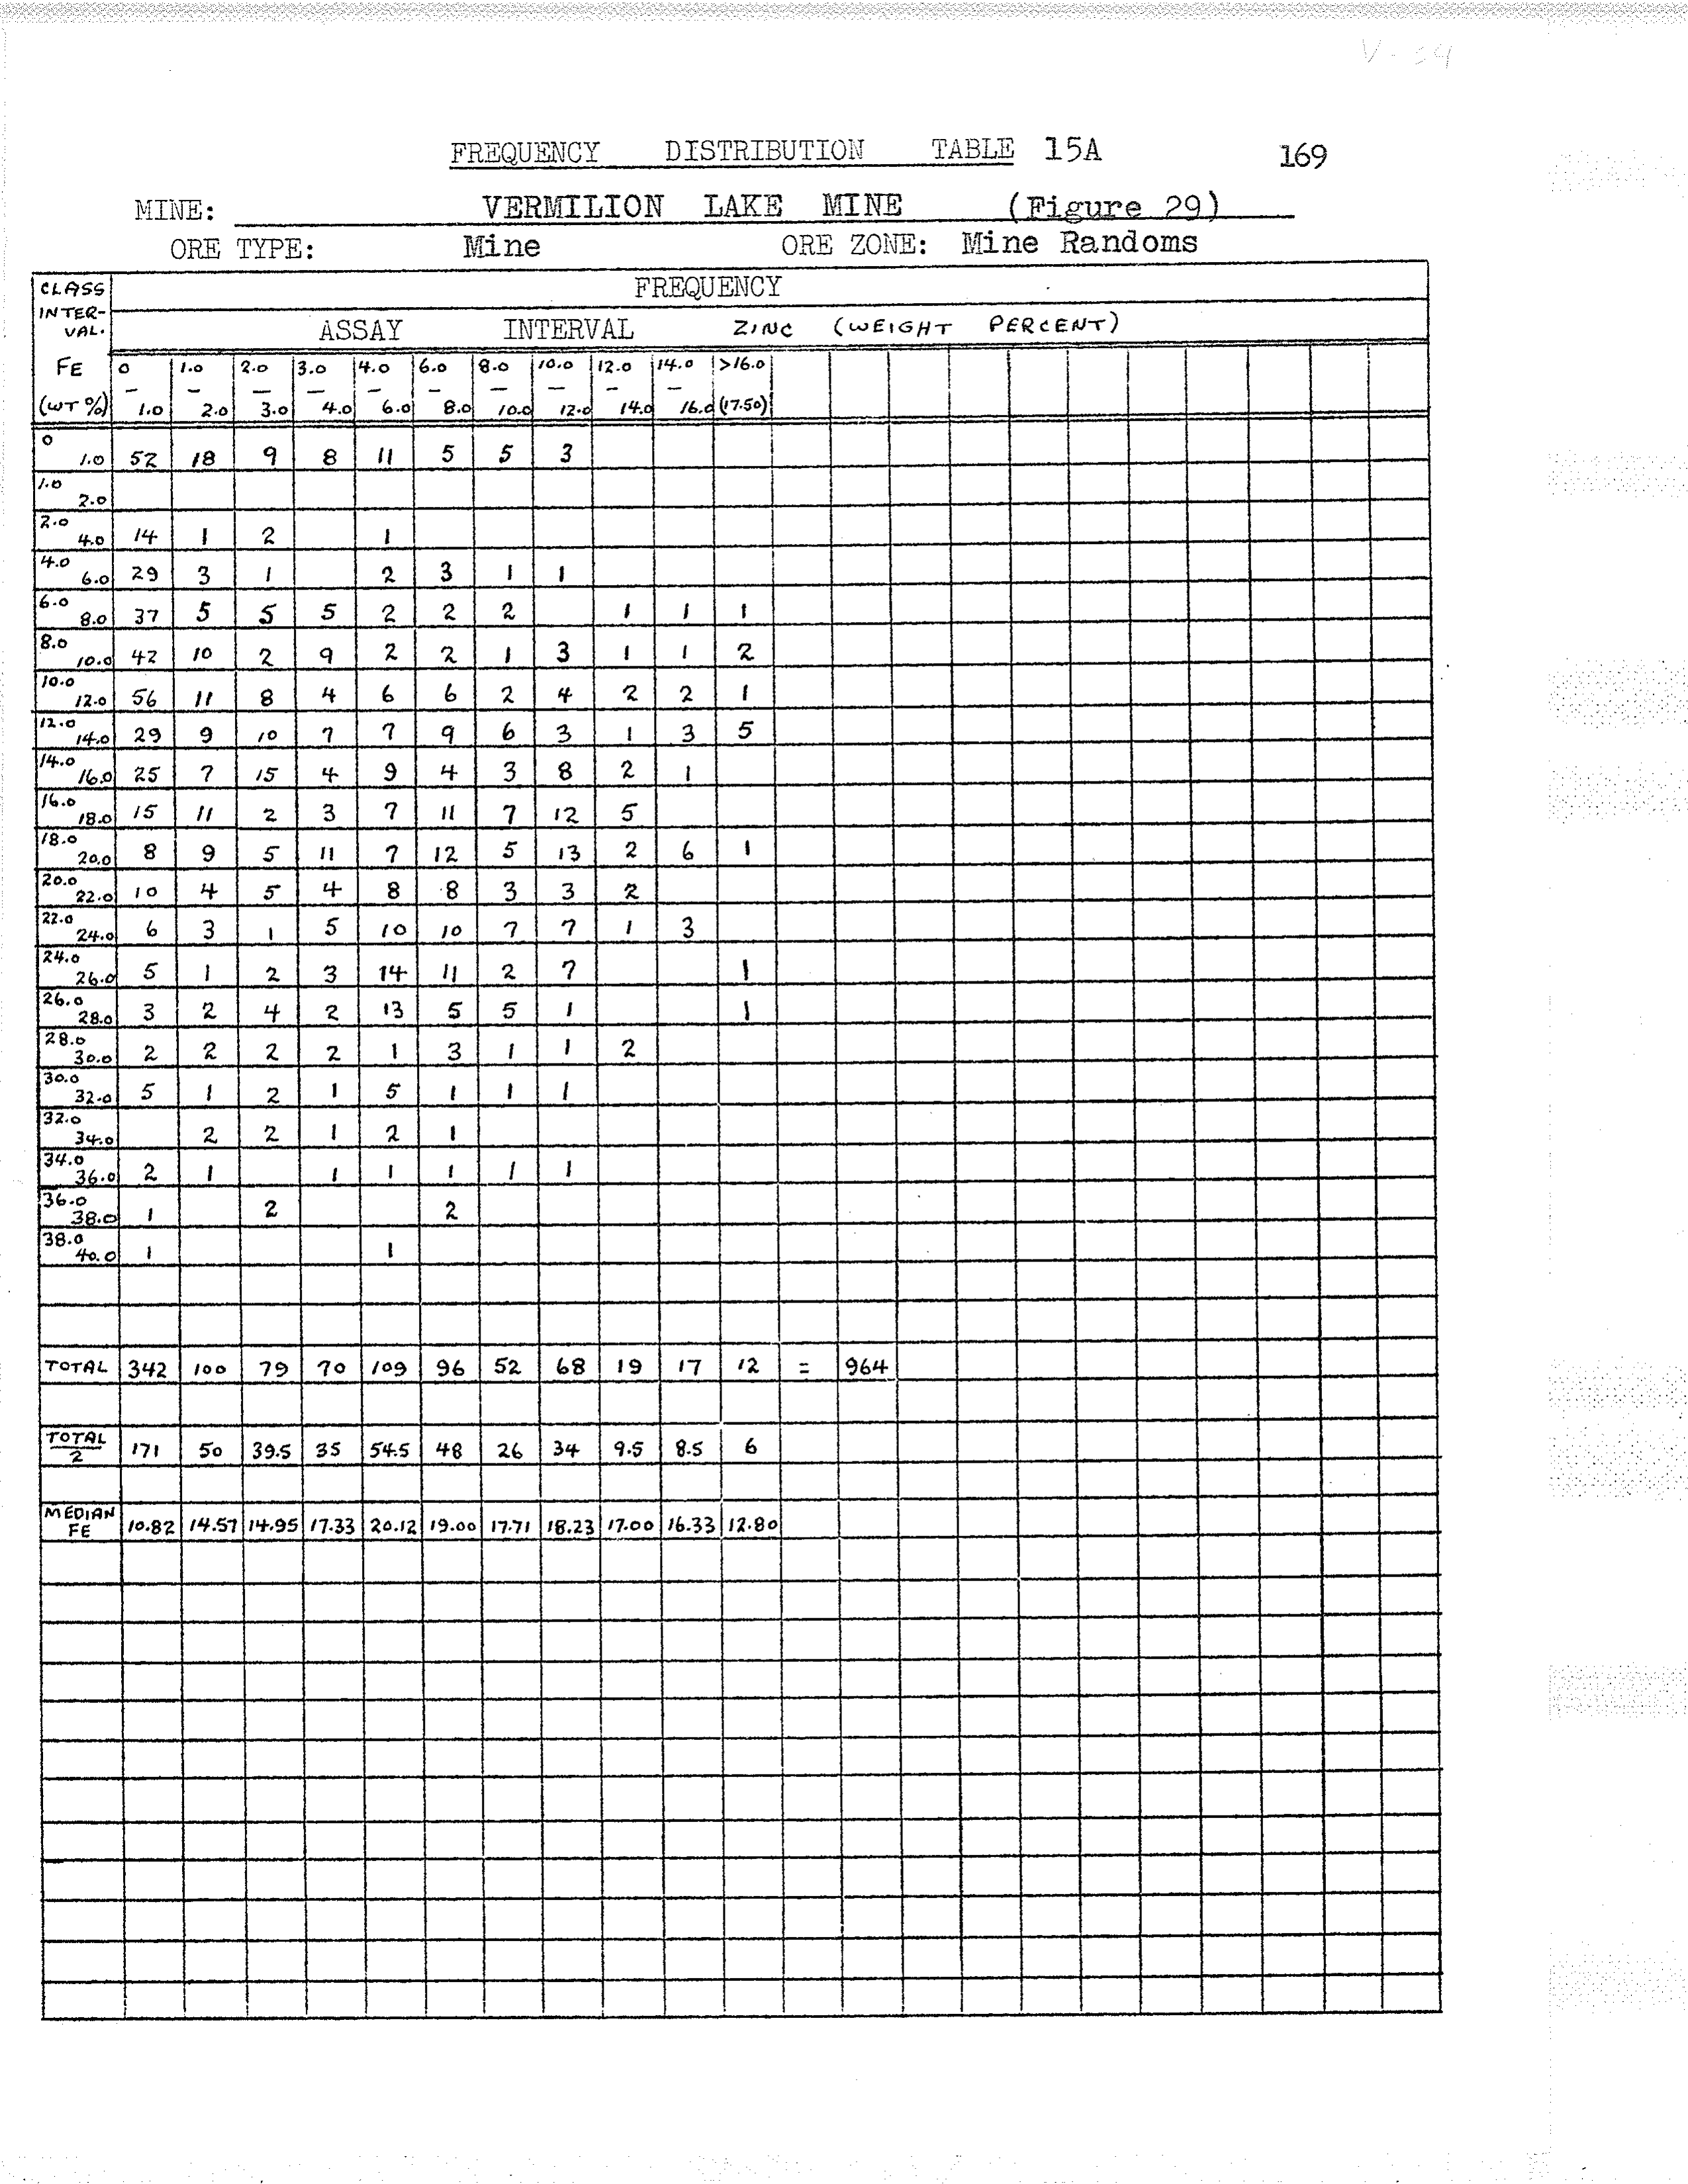 V-34
FREQUENCY DISTRIBUTION TABLE 15A 169
MINE: VERMILION LAKE MINE (Figure 29)
ORE TYPE: Mine ORE ZONE: Mine Randoms
CLASS INTER-VAL. FREQUENCY
ASSAY INTERVAL ZINC (WEIGHT PERCENT)
FE 0 1.0 2.0 3.0 4.0 6.0 8.0 10.0 12.0 14.0 >16.0
— — — — — — — — — —
(WT %) 1.0 2.0 3.0 4.0 6.0 8.0 10.0 12.0 14.0 16.0 (17.50)
0 1.0 52 18 9 8 11 5 5 3
1.0 2.0
2.0 4.0 14 1 2 1
4.0 6.0 29 3 1 2 3 1 1
6.0 8.0 37 5 5 5 2 2 2 1 1 1
8.0 10.0 42 10 2 9 2 2 1 3 1 1 2
10.0 12.0 56 11 8 4 6 6 2 4 2 2 1
12.0 14.0 29 9 10 7 7 9 6 3 1 3 5
14.0 16.0 25 7 15 4 9 4 3 8 2 1
16.0 18.0 15 11 2 3 7 11 7 12 5
18.0 20.0 8 9 5 11 7 12 5 13 2 6 1
20.0 22.0 10 4 5 4 8 8 3 3 2
22.0 24.0 6 3 1 5 10 10 7 7 1 3
24.0 26.0 5 1 2 3 14 11 2 7 1
26.0 28.0 3 2 4 2 13 5 5 1 1
28.0 30.0 2 2 2 2 1 3 1 1 2
30.0 32.0 5 1 2 1 5 1 1 1
32.0 34.0 2 2 1 2 1
34.0 36.0 2 1 1 1 1 1 1
36.0 38.0 1 2 2
38.0 40.0 1 1
TOTAL 342 100 79 70 109 96 52 68 19 17 12 = 964
TOTAL 2 171 50 39.5 35 54.5 48 26 34 9.5 8.5 6
MEDIAN FE 10.82 14.57 14.95 17.33 20.12 19.00 17.71 18.23 17.00 16.33 12.80